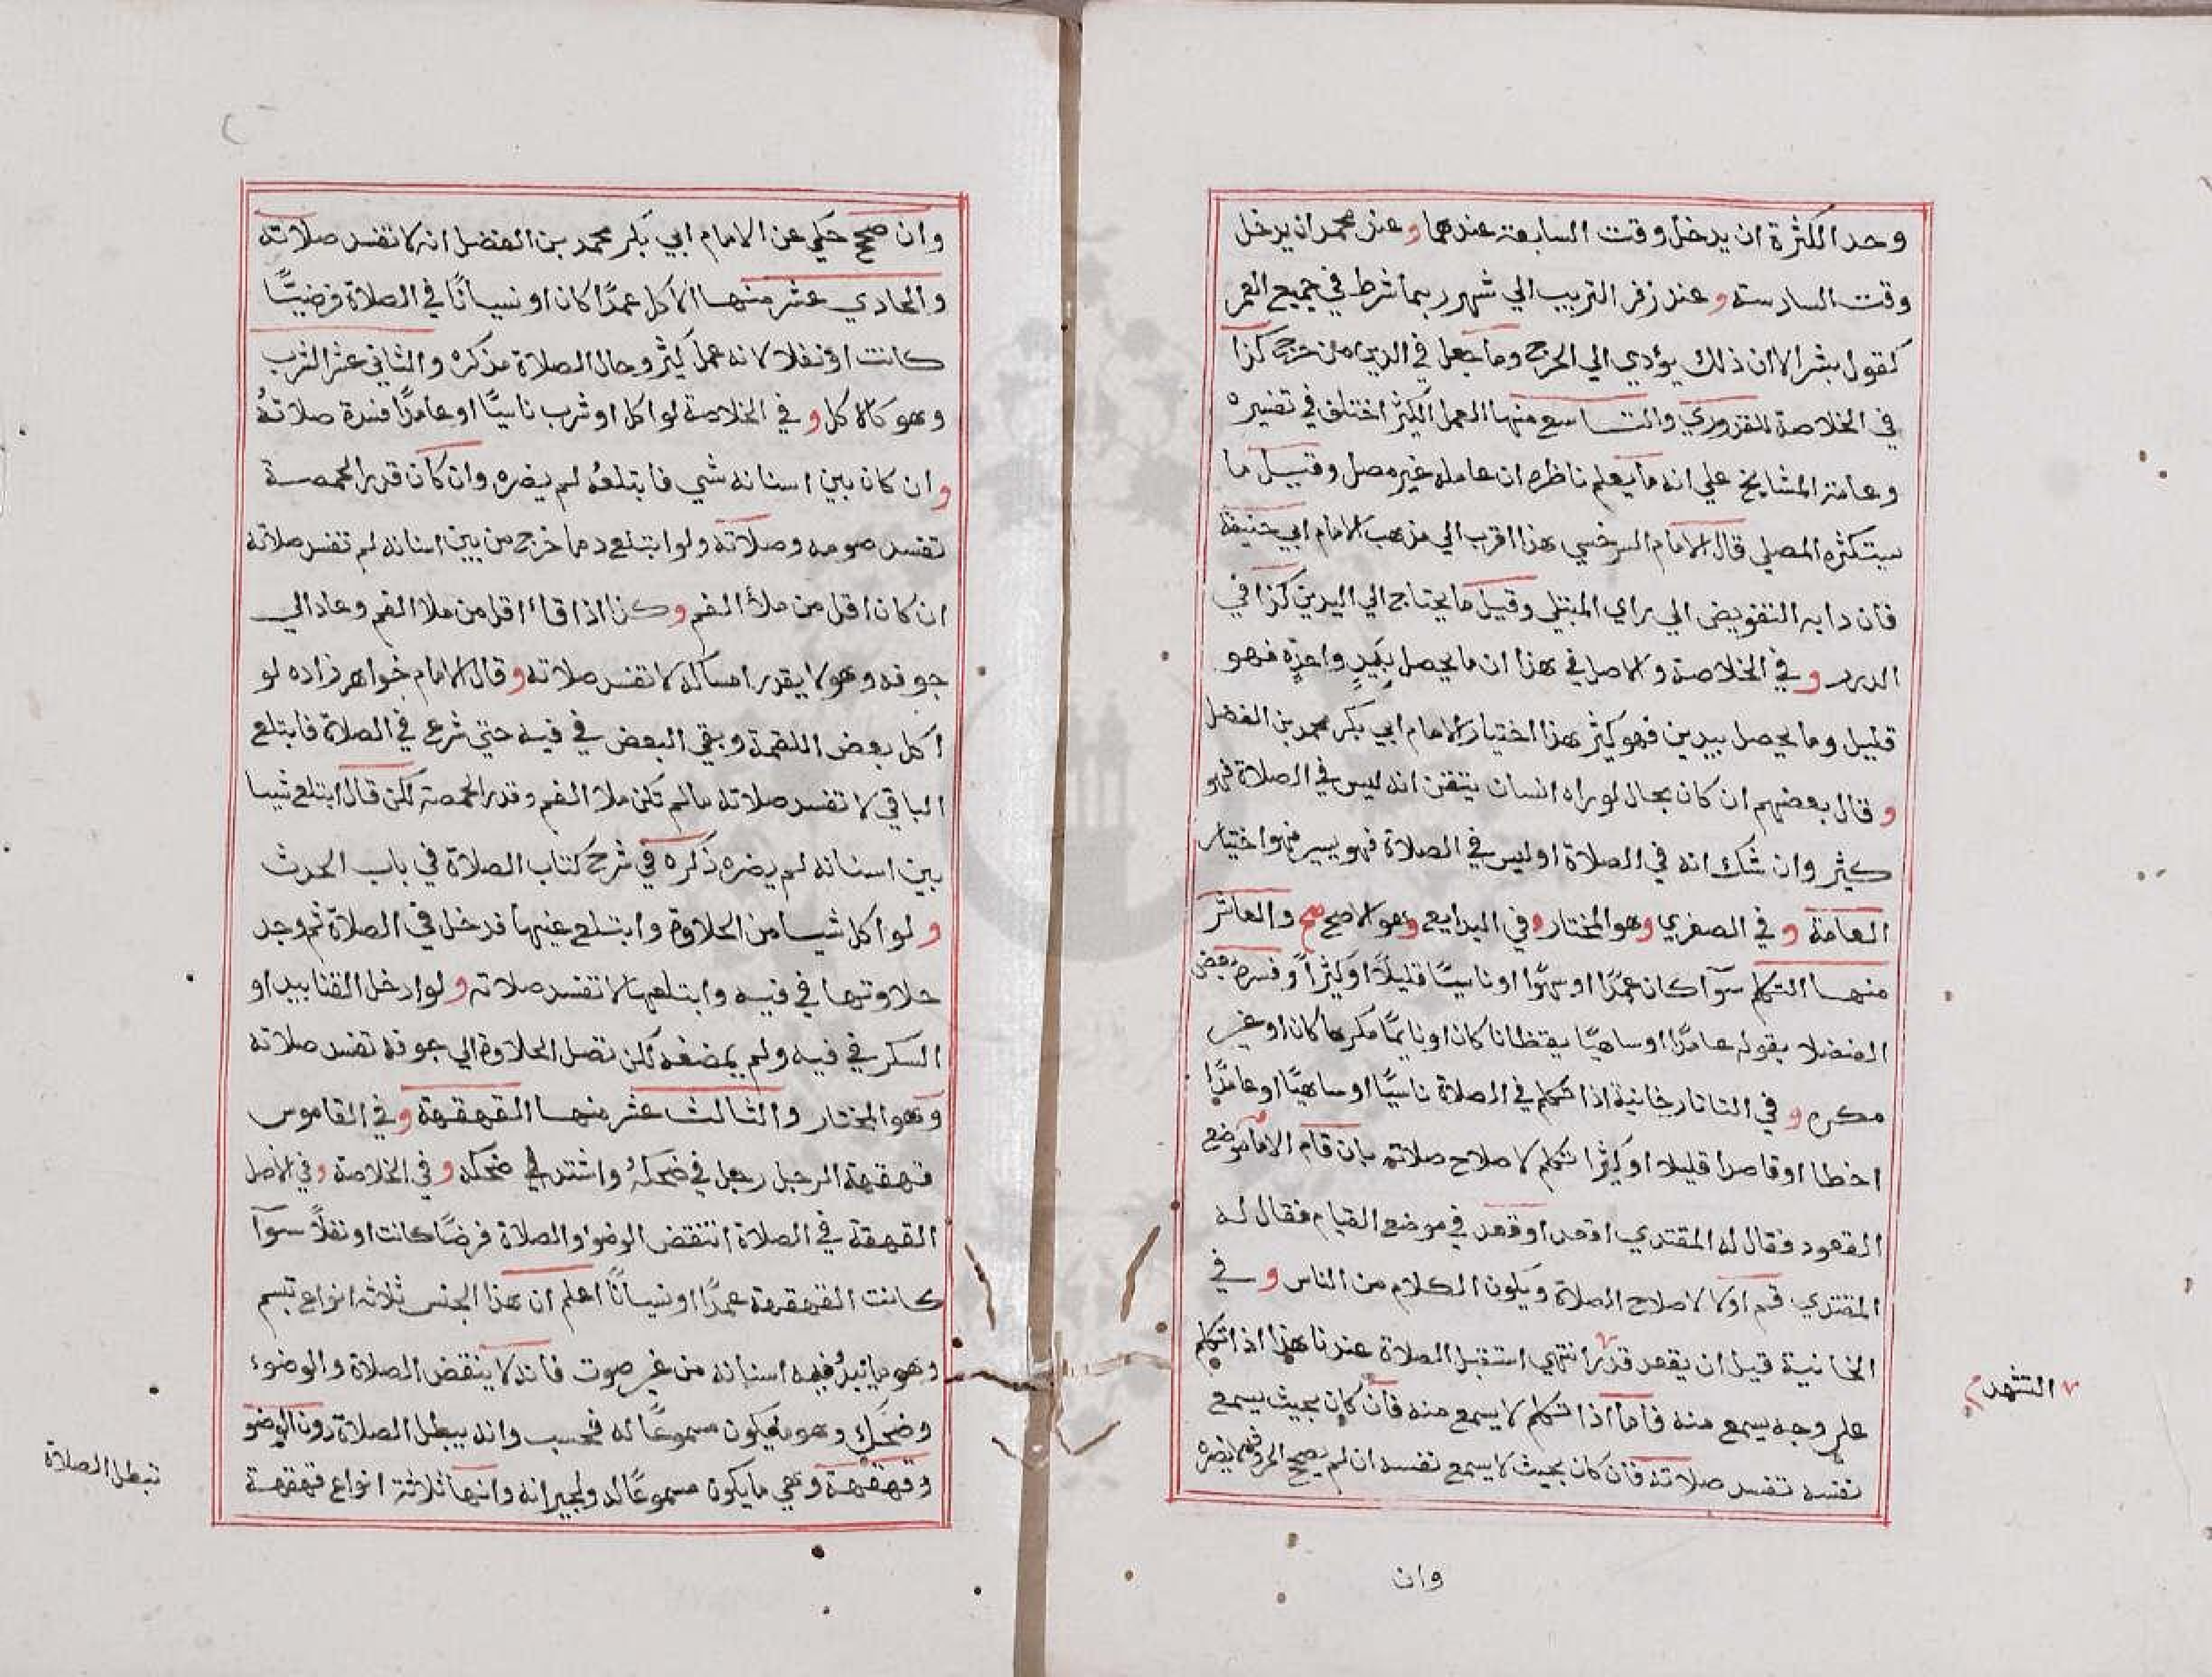 وحد الكثرة ان يدخل وقت السابعة عندهما وعند محمد ان يدخل
وقت السادسة وعند زفر الترتيب الي شهر ربما شرط في جميع العمر
كقول بشر الا ان ذلك يؤدي الي الحرج وما جعل في الدين من حرج كذا
في الخلاصة للقزوري والتاسع منها العمل الكثير اختلف في تفسيره
وعامة المشايخ علي انه ما يعلم ناظره ان عامله غير مصل وقيل ما
يستكثره المصلي قال الامام السرخسي هذا اقرب الي مذهب الامام ابي حنيفة
فان دابه التفويض الي راي المبتلي وقيل ما يحتاج الي اليدين كذا في
الدرر وفي الخلاصة والاصل في هذا ان ما يحصل بيد واحدة فهو
قليل وما يحصل بيدين فهو كثير هذا اختيار الامام ابي بكر محمد بن الفضل
وقال بعضهم ان كان بحال لو راه انسان يتقن انه ليس في الصلاة فهو
كثير وان شك انه في الصلاة او ليس في الصلاة فهو يسير وهو اختيار
العامة وفي الصغري وهو المختار وفي البدايع وهو الاصح صح والعاشر
منها التكلم سوآ كان عمدًا او سهوًا او ناسيًا قليلًا او كثيرًا وفسره بعض
الفضلا بقوله عامدًا او ساهيًا يقظانا كان او نايمًا مكرها كان او غير
مكره وفي التاتارخانية اذا تكلم في الصلاة ناسيًا او ساهيًا او عامدًا
اخطا او قاصدا قليلا او كثيرا تكلم لاصلاح صلاته بان قام الامام موضع
القعود فقال له المقتدي اقعد او قعد في موضع القيام فقال له
المقتدي قم او لا لاصلاح الصلاة ويكون الكلام من الناس وفي
الخانية قبل ان يقعد قدر انتهي استقبل الصلاة عندنا هذا اذا تكلم
التشهد
علي وجه يسمع منه فاما اذا تكلم لا يسمع منه فان كان بحيث يسمع
نفسه تفسد صلاته فان كان بحيث لا يسمع نفسه ان لم يصحح الحروف لم يضره
وان
وان صحح حكي عن الامام ابي بكر محمد بن الفضل انه لا تفسد صلاته
والحادي عشر منها الاكل عمدًا كان او نسيانًا في الصلاة فرضيتًا
كانت او نفلا لانه عمل كثير وحال الصلاة مذكره والثاني عشر الشرب
وهو كالاكل وفي الخلاصة لو اكل او شرب ناسيًا او عامدًا فسدة صلاتهُ
وان كان بين اسنانه شي فابتلعهُ لم يضره وان كان قدر الحمصة
تفسد صومه وصلاته ولو ابتلع دما خرج من بين اسنانه لم تفسد صلاته
ان كان اقل من ملأ الفم وكذا اذا قاء اقل من ملا الفم وعاد الي
جوفه وهو لا يقدر امساكه لا تفسد صلاته وقال الامام خواهر زاده لو
اكل بعض اللقمة وبقي البعض في فيه حتي شرع في الصلاة فابتلع
الباقي لا تفسد صلاته ما لم تكن ملا الفم وقدر الحمصة لكن قال ابتلع شيا
بين اسنانه لم يضره ذكره في شرح كتاب الصلاة في باب الحدث
ولو اكل شيا من الحلاوة وابتلع عينها فدخل في الصلاة فوجد
حلاوتها في فيه وابتلعها لا تفسد صلاته ولو ادخل الفنابيد او
السكر في فيه ولم يمضغه لكن تصل الحلاوة الي جوفه تفسد صلاته
وهو المختار والثالث عشر منها القهقهة وفي القاموس
قهقهة الرجل رجل في ضحكهُ واشتد في ضحكه وفي الخلاصة وفي الاصل
القهقة في الصلاة انتقض الوضو والصلاة فرضًا كانت او نفلًا سوآ
كانت القهقهة عمدًا او نسيانًا اعلم ان هذا الجنس ثلاثه انواع تبسم
وهو ما تبدُ فيه اسنانه من غير صوت فانه لا ينقض الصلاة والوضوء
وضحك وهو ما يكون مسموعًا له فحسب وانه يبطل الصلاة دون الوضو
تبطل الصلاة
وقهقهة وهي ما يكون مسموعًا له ولجيرانه وانها ثلاثة انواع قهقهة